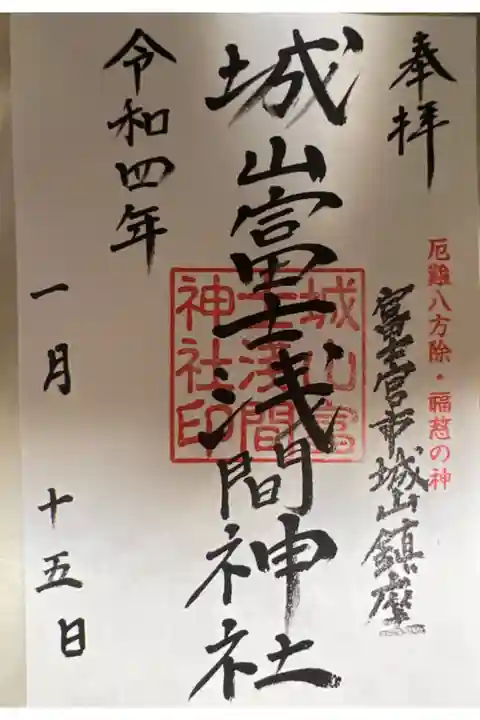 奉拝
厄難八方除・福慈の神
富士宮市城山鎮座
城山富士浅間神社
城山富
士浅間
神社印
令和四年
一月 十五日